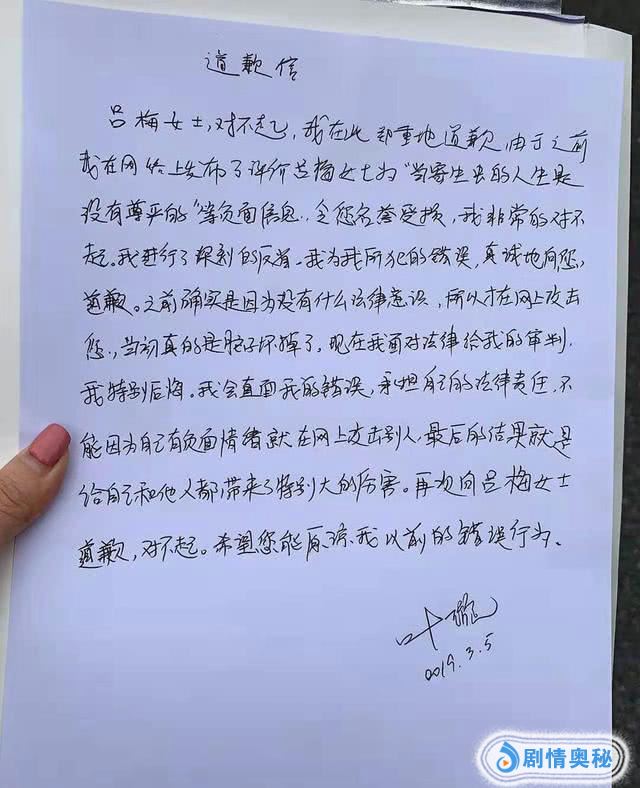 道歉信
吕梅女士,对不起,我在此郑重地道歉,由于之前
我在网络上发布了评价吕梅女士为“当寄生虫的人生是
没有尊严的”等负面信息,令您名誉受损,我非常的对不
起。我进行了深刻的反省,我为我所犯的错误,真诚地向您
道歉。之前确实是因为没有什么法律意识,所以才在网上攻击
您,当初真的是脑子坏掉了,现在我面对法律给我的审判,
我特别后悔。我会直面我的错误,承担自己的法律责任,不
能因为自己有负面情绪就在网上攻击别人,最后的结果就是
给自己和他人都带来了特别大的厉害。再次向吕梅女士
道歉,对不起。希望您能原谅我以前的错误行为。
叶璇
2019.3.5
剧情奥秘